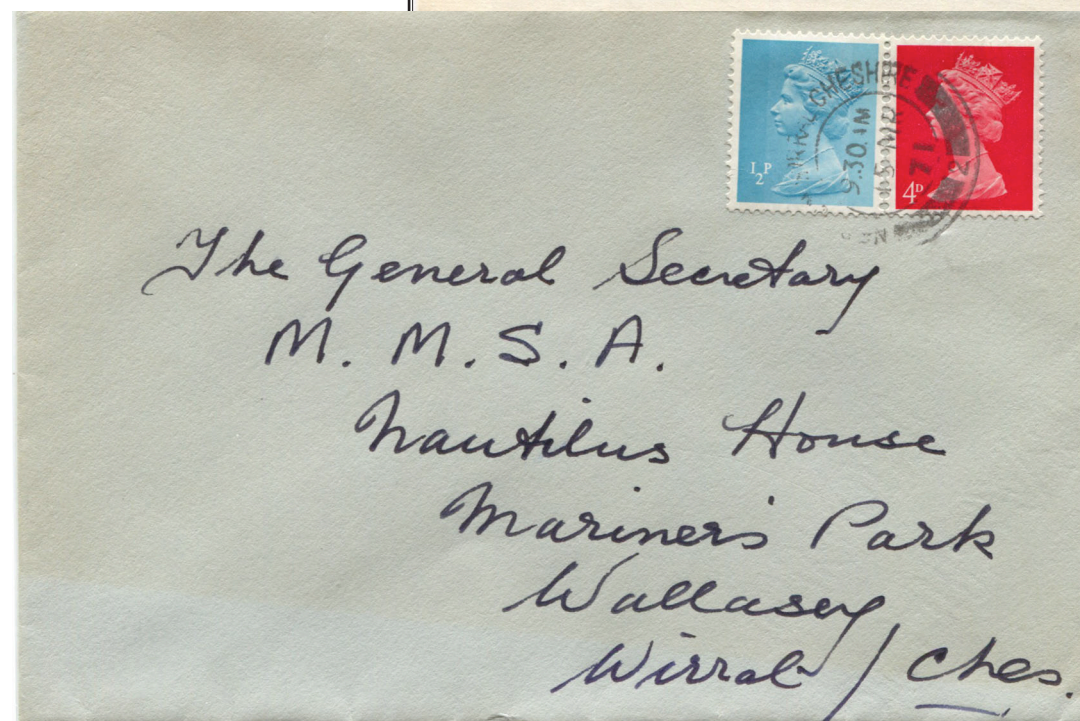 ½P
4D
CHESHIRE
9.30 AM
15 MR
71
The General Secretary
M. M. S. A.
Nautilus House
Mariners Park
Wallasey
Wirral / Ches.